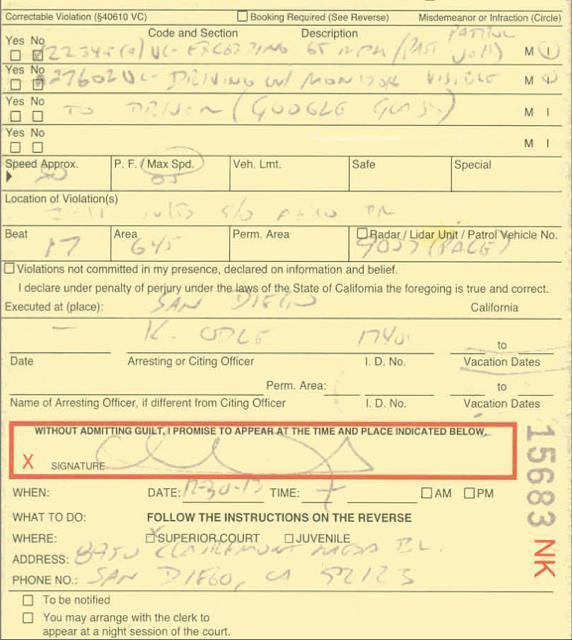 Correctable Violation (§40610 VC) Booking Required (See Reverse) Misdemeanor or Infraction (Circle)
Yes No Code and Section Description PATROL
22349(a) VC - EXCEEDING 65 MPH (PAST M I
Yes No
27602 VC - DRIVING W/ MONITOR VISIBLE M I
Yes No
TO DRIVER (GOOGLE GLASS) M I
Yes No
M I
Speed Approx. P. F. / Max Spd. Veh. Lmt. Safe Special
80 65
Location of Violation(s)
S/O AERO DR
Beat Area Perm. Area Radar / Lidar Unit / Patrol Vehicle No.
17 645 (PACE)
Violations not committed in my presence, declared on information and belief.
I declare under penalty of perjury under the laws of the State of California the foregoing is true and correct.
Executed at (place): SAN DIEGO California
K. ODLE to
Date Arresting or Citing Officer I. D. No. Vacation Dates
Perm. Area: to
Name of Arresting Officer, if different from Citing Officer I. D. No. Vacation Dates
WITHOUT ADMITTING GUILT, I PROMISE TO APPEAR AT THE TIME AND PLACE INDICATED BELOW.
X SIGNATURE
WHEN: DATE: 12-30-13 TIME: AM PM
WHAT TO DO: FOLLOW THE INSTRUCTIONS ON THE REVERSE
WHERE: SUPERIOR COURT JUVENILE
ADDRESS: 8950 CLAIREMONT MESA BL.
PHONE NO.: SAN DIEGO, CA 92123
To be notified
You may arrange with the clerk to
appear at a night session of the court.
15683 NK